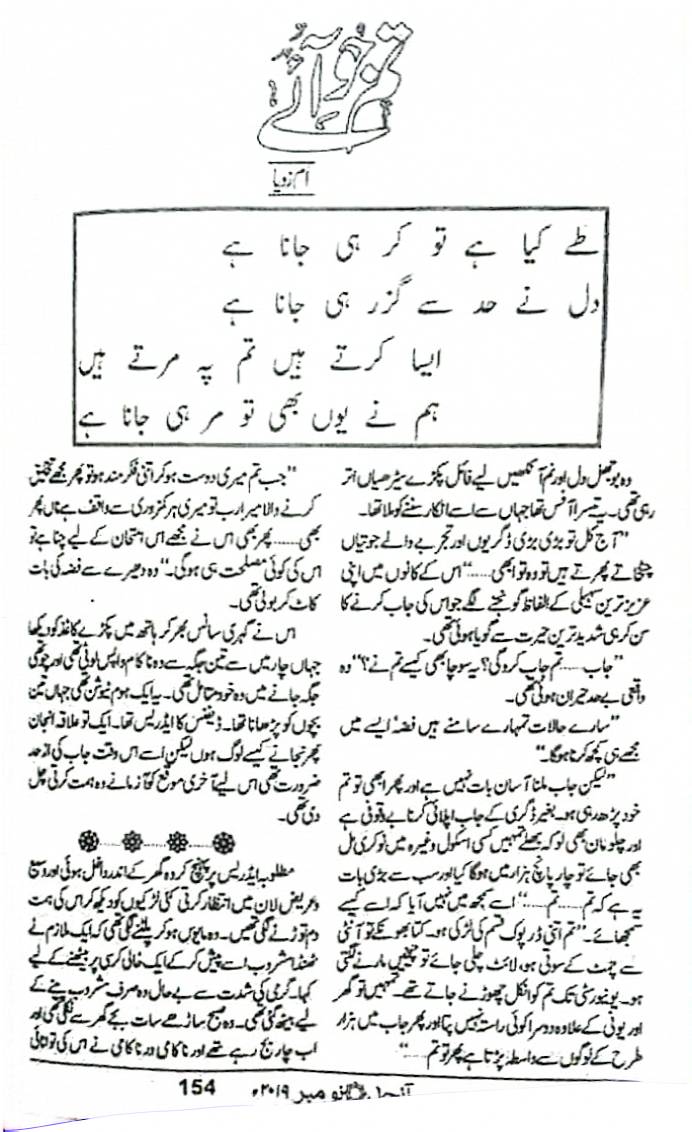 تم جو آئے
ام زویا
طے کیا ہے تو کر ہی جانا ہے
دل نے حد سے گزر ہی جانا ہے
ایسا کرتے ہیں تم پہ مرتے ہیں
ہم نے یوں بھی تو مر ہی جانا ہے
وہ بوجھل دل اور نم آنکھیں لیے فائل پکڑے سیڑھیاں اتر
رہی تھی۔ یہ تیسرا آفس تھا جہاں سے اسے انکار سننے کو ملا تھا۔
”آج کل تو بڑی بڑی ڈگریوں اور تجربے والے جوتیاں
چٹخاتے پھرتے ہیں تو وہ تو ابھی......“ اس کے کانوں میں اپنی
عزیز ترین سہیلی کے الفاظ گونجنے لگے جو اس کی جاب کرنے کا
سن کر ہی شدید ترین حیرت سے گویا ہوئی تھی۔
”جاب...... تم جاب کرو گی؟ یہ سوچا بھی کیسے تم نے؟“ وہ
واقعی بے حد حیران ہوئی تھی۔
”سارے حالات تمہارے سامنے ہیں فضہ ایسے میں
مجھے ہی کچھ کرنا ہوگا۔“
”لیکن جاب ملنا آسان بات نہیں ہے اور پھر ابھی تو تم
خود پڑھ رہی ہو۔ بغیر ڈگری کے جاب اپلائی کرنا بے وقوفی ہے
اور چلو مان بھی لو کہ بھلے تمہیں کسی اسکول وغیرہ میں نوکری مل
بھی جائے تو چار پانچ ہزار میں ہوگا کیا اور سب سے بڑی بات
یہ ہے کہ تم...... تم......“ اسے سمجھ میں نہیں آیا کہ اسے کیسے
سمجھائے۔ ”تم اتنی ڈرپوک قسم کی لڑکی ہو۔ کتا بھونکے تو آنٹی
سے چمٹ کے سوتی ہو، لائٹ چلی جائے تو چیخیں مارنے لگتی
ہو۔ یونیورسٹی تک تم کو انکل چھوڑنے جاتے تھے۔ تمہیں تو گھر
اور یونی کے علاوہ دوسرا کوئی راستہ نہیں پتا اور پھر جاب میں ہزار
طرح کے لوگوں سے واسطہ پڑتا ہے پھر تو تم......“
”جب تم میری دوست ہو کر اتنی فکر مند ہو تو پھر مجھے تخلیق
کرنے والا میرا رب تو میری ہر کمزوری سے واقف ہے ناں پھر
بھی...... پھر بھی اس نے مجھے اس امتحان کے لیے چنا ہے تو
اس کی کوئی مصلحت ہی ہوگی۔“ وہ دھیرے سے فضہ کی بات
کاٹ کر بولی تھی۔
اس نے گہری سانس بھر کر ہاتھ میں پکڑے کاغذ کو دیکھا
جہاں چار میں سے تین جگہ سے وہ ناکام واپس لوٹی تھی اور چوتھی
جگہ جانے میں وہ خود متامل تھی۔ یہ ایک ہوم ٹیوشن تھی جہاں تین
بچوں کو پڑھانا تھا۔ ڈیفنس کا ایڈریس تھا۔ ایک تو علاقہ انجان
پھر نجانے کیسے لوگ ہوں لیکن اسے اس وقت جاب کی از حد
ضرورت تھی اس لیے آخری موقع کو آزمانے وہ ہمت کرتی چل
دی تھی۔
مطلوبہ ایڈریس پر پہنچ کر وہ گھر کے اندر داخل ہوئی اور وسیع
و عریض لان میں انتظار کرتی کئی لڑکیوں کو دیکھ کر اس کی ہمت
دم توڑنے لگی تھیں۔ وہ مایوس ہو کر پلٹنے لگی تھی کہ ایک ملازم نے
ٹھنڈا مشروب اسے پیش کر کے ایک خالی کرسی پر بیٹھنے کے لیے
کہا۔ گرمی کی شدت سے بے حال وہ صرف مشروب پینے کے
لیے بیٹھ گئی تھی۔ وہ صبح ساڑھے سات بجے گھر سے نکلی تھی اور
اب چار بج رہے تھے اور ناکامی در ناکامی نے اس کی توانائی
154 نومبر ۲۰۱۹ء